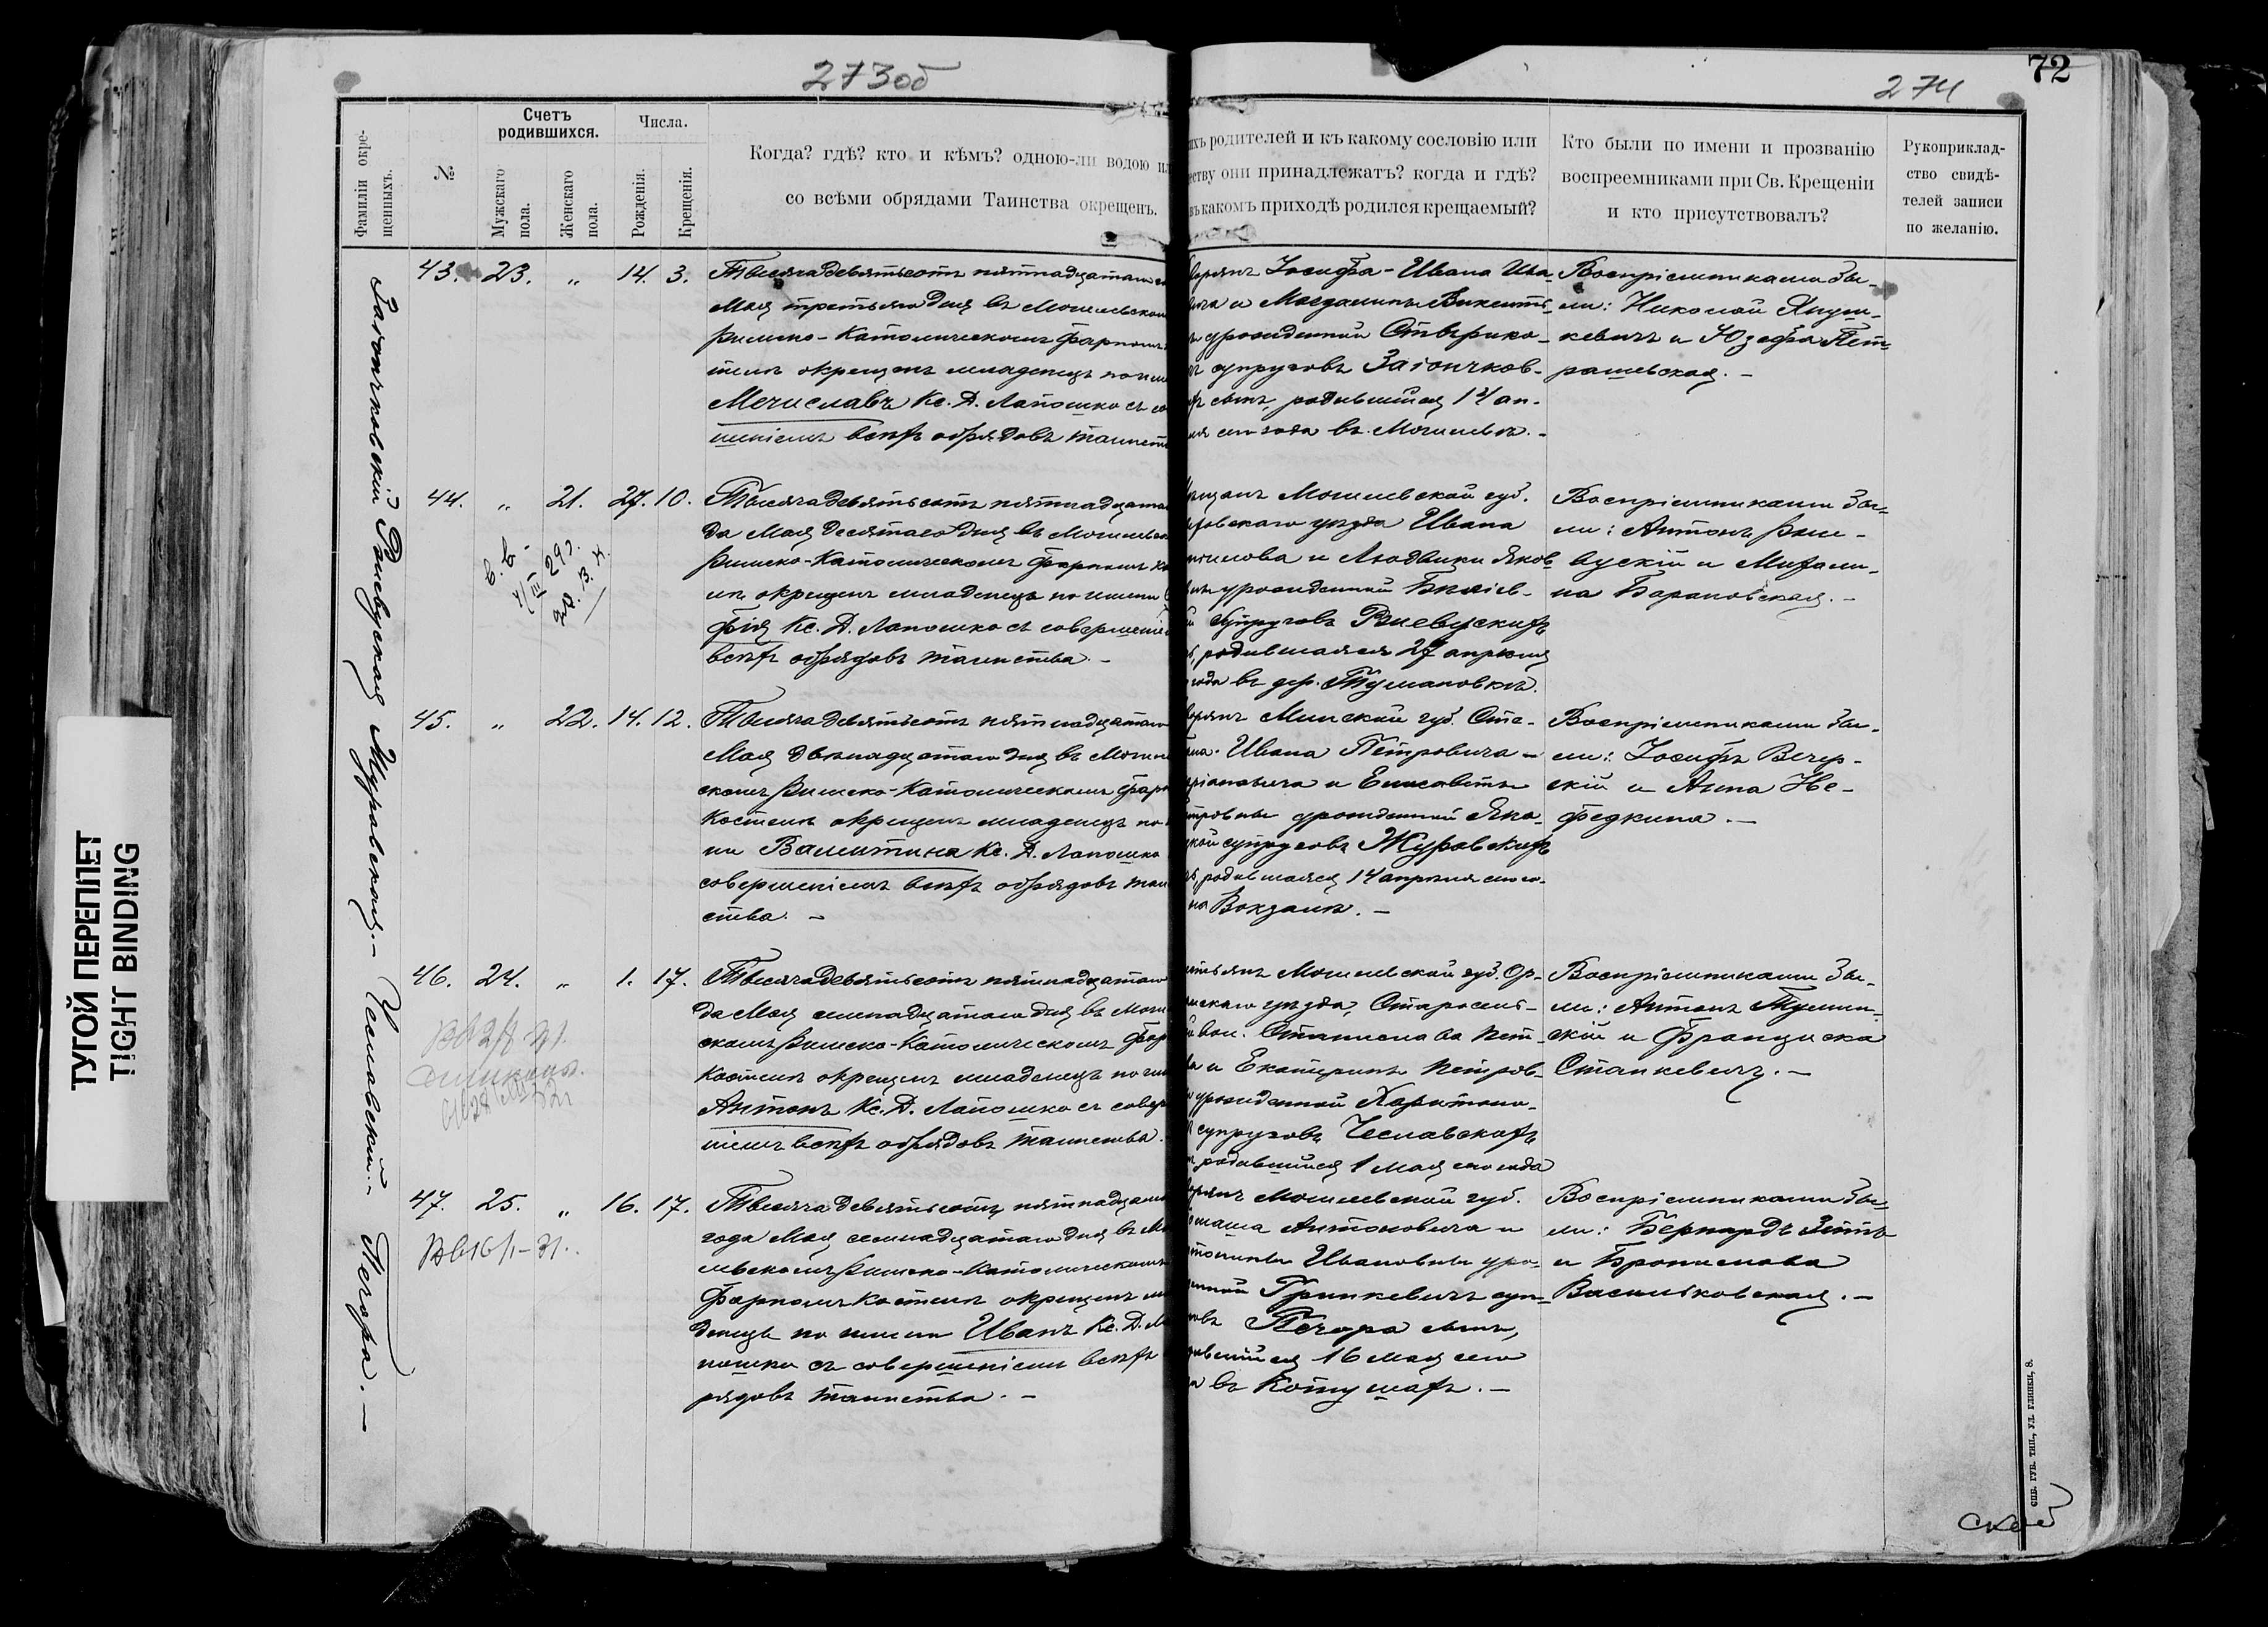 273об
72
274
Фамиліи окре-
щенныхъ.
№
Счетъ
родившихся.
Мужскаго
пола.
Женскаго
пола.
Числа.
Рожденія.
Крещенія.
Когда? гдѣ? кто и кѣмъ? одною-ли водою
со всѣми обрядами Таинства окрещенъ.
ихъ родителей и къ какому сословію или
еству они принадлежатъ? когда и гдѣ?
въ какомъ приходѣ родился крещаемый?
Кто были по имени и прозванію
воспреемниками при Св. Крещеніи
и кто присутствовалъ?
Рукоприклад-
ство свидѣ-
телей записи
по желанію.
Заіончковскій
43. 23. „ 14. 3.
Тысяча девятьсотъ пятнадцатаго
Мая третьяго дня въ Могилевском
Римско-Католическомъ Фарномъ
телѣ окрещенъ младенецъ по им
Мечиславъ Кс. Д. Лапошко съ со
шеніемъ всѣхъ обрядовъ таинст
Іосифа-Ивана Ива-
ича и Магдалины Викентье-
урожденной Стверико-
супруговъ Заіончков-
сынъ, родившійся 14 ап-
сего года въ Могилевѣ.-
Воспріемниками бы-
ли: Николай Януш-
кевичъ и Юзефа Пет-
рашевская.-
Ржевуская
44. „ 21. 27. 10.
Тысяча девятьсотъ пятнадцата
да Мая десятаго дня въ Могилевск
Римско-Католическомъ Фарномъ ко
лѣ окрещенъ младенецъ по имени
фія Кс. Д. Лапошко съ совершені
всѣхъ обрядовъ таинства.-
Могилевской губ.
уѣзда Ивана
и Людвики Яков-
урожденной
супруговъ Ржевускихъ
родившаяся 27 апрѣля
года въ дер. Тумановкѣ.
Воспріемниками бы-
ли: Антонъ Рже-
вускій и Михали-
на Барановская.-
Журовская.-
45. „ 22. 14. 12.
Тысяча девятьсотъ пятнадцатаго
Мая двѣнадцатаго дня въ Могиле
скомъ Римско-Католическомъ Фарн
Костелѣ окрещенъ младенецъ по
ни Валентина Кс. Д. Лапошко
совершеніемъ всѣхъ обрядовъ таин
ства.-
Минской губ. Сте-
Ивана Петровича-
и Елисаветы
тровны урожденной Яно-
ской супруговъ Журовскихъ
родившаяся 14 апрѣля сего го-
на Вокзалѣ.-
Воспріемниками бы-
ли: Іосифъ Вечер-
скій и Анна Не-
федкина.-
Чеславскій.-
46. 24. „ 1. 17.
Тысяча девятьсотъ пятнадцатаго
да Мая семнадцатаго дня въ Моги
скомъ Римско-Католическомъ Фар
Костелѣ окрещенъ младенецъ по им
Антонъ Кс. Д. Лапошко съ совер
ніемъ всѣхъ обрядовъ таинства.
Могилевской губ. Ор-
шскаго уѣзда, Старосель-
вол. Станислава Пет-
и Екатерины Петров-
урожденной Харитоно-
супруговъ Чеславскихъ
родившійся 1 мая сего года
Воспріемниками бы-
ли: Антонъ Тумин-
скій и Франциска
Станкевичъ.-
Печора.-
47. 25. „ 16. 17.
Тысяча девятьсотъ пятнадцат
года Мая семнадцатаго дня въ Мо
левскомъ Римско-Католическомъ
Фарномъ Костелѣ окрещенъ мл
денецъ по имени Иванъ Кс. Д. Ла
пошко съ совершеніемъ всѣхъ
рядовъ таинства.-
Могилевской губ.
Антоновича и
Ивановны уро-
Гринкевичъ суп-
Печора сынъ,
родившійся 16 мая сего
въ Котушахъ.-
Воспріемниками бы-
ли: Бернардъ
и Бронислава
Васильковская.-
ТУГОЙ ПЕРЕПЛЕТ
TIGHT BINDING
СПБ. ГУБ. ТИП., УЛ. ГЛИНКИ, 8.